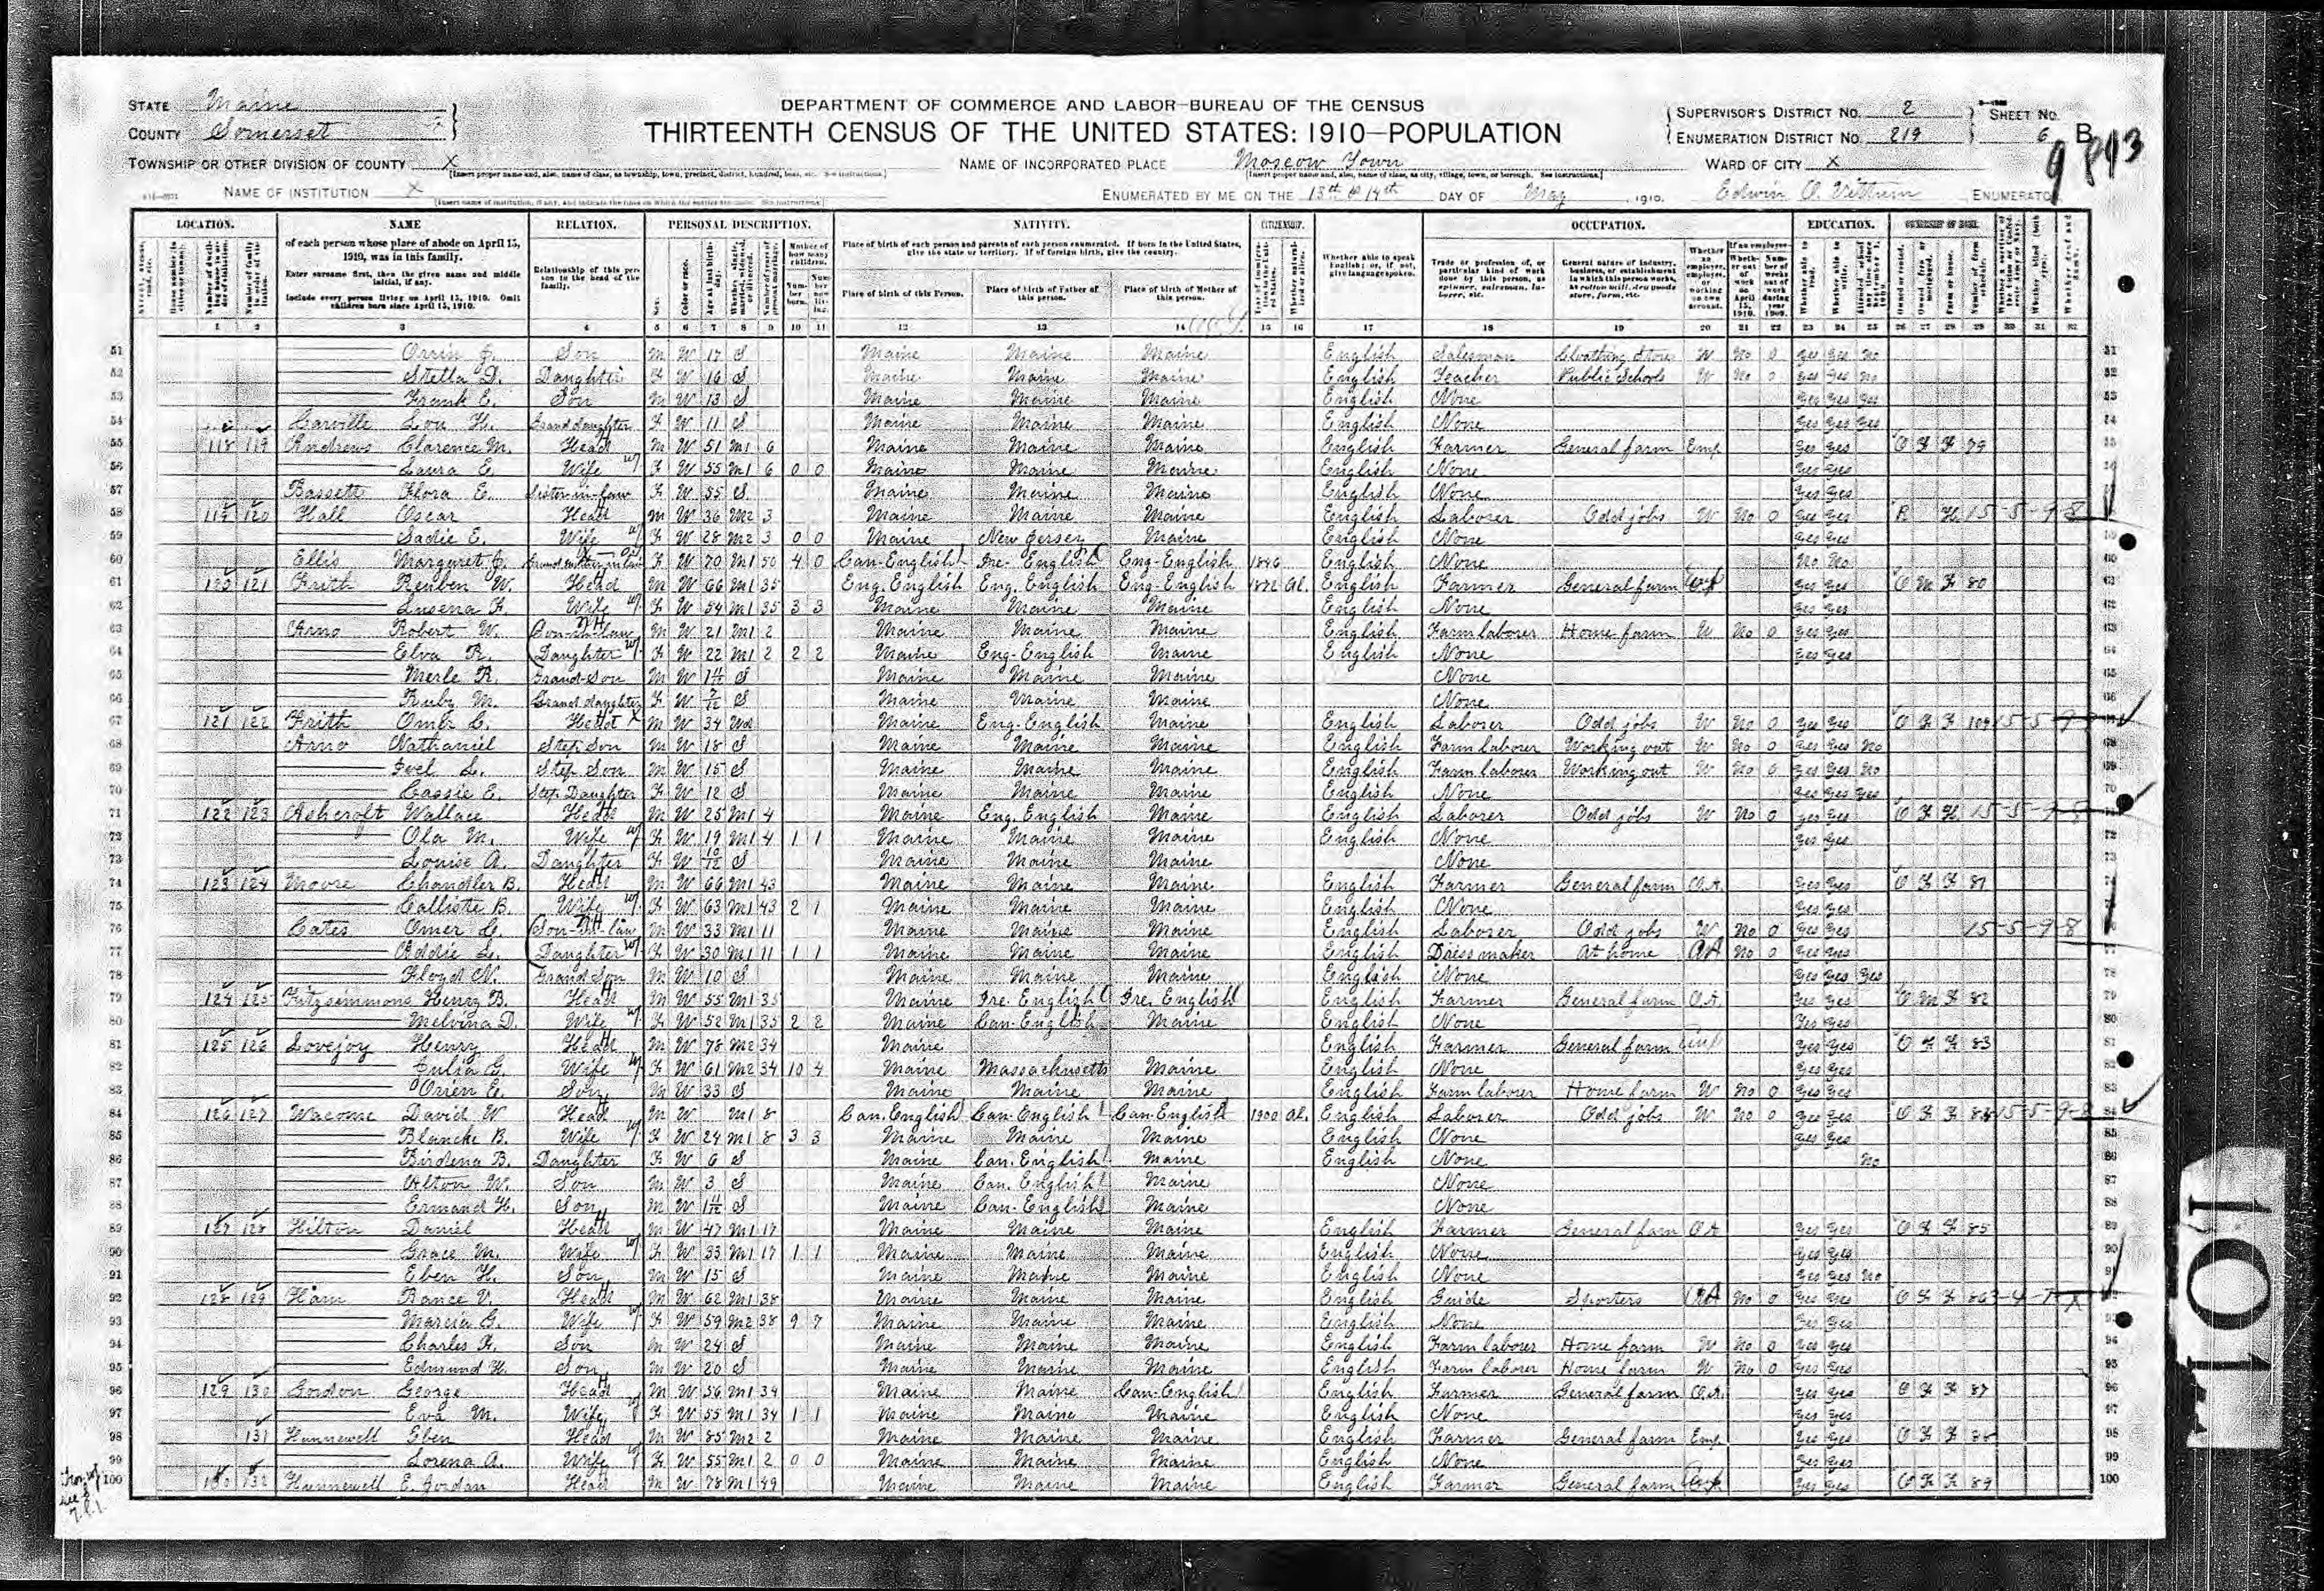 STATE Maine
COUNTY Somerset
DEPARTMENT OF COMMERCE AND LABOR—BUREAU OF THE CENSUS
THIRTEENTH CENSUS OF THE UNITED STATES: 1910—POPULATION
SUPERVISOR'S DISTRICT NO. 2
ENUMERATION DISTRICT NO. 219
SHEET NO. 6 B
9813
TOWNSHIP OR OTHER DIVISION OF COUNTY X
NAME OF INCORPORATED PLACE Moscow Town
WARD OF CITY X
NAME OF INSTITUTION X
ENUMERATED BY ME ON THE 13th & 14th DAY OF May, 1910.
Edwin ENUMERATOR
LOCATION. NAME RELATION. PERSONAL DESCRIPTION. NATIVITY. CITIZENSHIP. OCCUPATION. EDUCATION. OWNERSHIP OF HOME.
of each person whose place of abode on April 15, 1910, was in this family.
Enter surname first, then the given name and middle initial, if any.
Include every person living on April 15, 1910. Omit children born since April 15, 1910.
Relationship of this person to the head of the family.
Place of birth of each person and parents of each person enumerated. If born in the United States, give the state or territory. If of foreign birth, give the country.
Place of birth of this Person. Place of birth of Father of this person. Place of birth of Mother of this person.
Whether able to speak English; or, if not, give language spoken.
1 2 3 4 5 6 7 8 9 10 11 12 13 14 15 16 17 18 19 20 21 22 23 24 25 26 27 28 29 30 31 32
51 Orrin J. Son M W 17 S Maine Maine Maine English Salesman Cloathing Store W No 0 Yes Yes No 51
52 Stella D. Daughter F W 16 S Maine Maine Maine English Teacher Public Schools W No 0 Yes Yes No 52
53 Frank E. Son M W 13 S Maine Maine Maine English None Yes Yes Yes 53
54 Carville Lou H. Grand daughter F W 11 S Maine Maine Maine English None Yes Yes Yes 54
55 118 119 Andrews Clarence M. Head M W 51 M1 6 Maine Maine Maine English Farmer General farm Emp Yes Yes O F F 79 55
56 Laura E. Wife F W 55 M1 6 0 0 Maine Maine Maine English None Yes Yes 56
57 Bassett Flora E. Sister-in-law F W 55 S Maine Maine Maine English None Yes Yes 57
58 119 120 Hall Oscar Head M W 36 M2 3 Maine Maine Maine English Laborer Odd jobs W No 0 Yes Yes R H 15-5-9-8
59 Sadie E. Wife F W 28 M2 3 0 0 Maine New Jersey Maine English None Yes Yes 59
60 Ellis Margaret J. Grandmother in law F W 70 M1 50 4 0 Can-English Ire-English Eng-English 1846 English None No No 60
61 120 121 Frith Reuben W. Head M W 66 M1 35 Eng. English Eng. English Eng-English 1872 Al. English Farmer General farm Yes Yes O M F 80 61
62 Lusena F. Wife F W 54 M1 35 3 3 Maine Maine Maine English None Yes Yes 62
63 Arno Robert W. Son-in-law M W 21 M1 2 Maine Maine Maine English Farm laborer Home farm W No 0 Yes Yes 63
64 Elva R. Daughter F W 22 M1 2 2 2 Maine Eng-English Maine English None Yes Yes 64
65 Merle R. Grand-Son M W S Maine Maine Maine None 65
66 Ruby M. Grand daughter F W S Maine Maine Maine None 66
67 121 122 Frith Omer C. Head M W 34 Wd Maine Eng-English Maine English Laborer Odd jobs W No 0 Yes Yes O F F 15-5-9-8
68 Arno Nathaniel Step Son M W 18 S Maine Maine Maine English Farm laborer Working out W No 0 Yes Yes No 68
69 L. Step Son M W 15 S Maine Maine Maine English Farm laborer Working out W No 0 Yes Yes No 69
70 Cassie E. Step Daughter F W 12 S Maine Maine Maine English None Yes Yes Yes 70
71 122 123 Ashcroft Wallace Head M W 25 M1 4 Maine Eng. English Maine English Laborer Odd jobs W No 0 Yes Yes O F H 15-5-9-8
72 Ola M. Wife F W 19 M1 4 1 1 Maine Maine Maine English None Yes Yes 72
73 Louise A. Daughter F W 10/12 S Maine Maine Maine None 73
74 123 124 Moore Chandler B. Head M W 66 M1 43 Maine Maine Maine English Farmer General farm O.A. Yes Yes O F F 81 74
75 Calliste B. Wife F W 63 M1 43 2 1 Maine Maine Maine English None Yes Yes 75
76 Cates Omer L. Son-in-law M W 33 M1 11 Maine Maine Maine English Laborer Odd jobs W No 0 Yes Yes 15-5-9-8
77 Addie L. Daughter F W 30 M1 11 1 1 Maine Maine Maine English Dressmaker At home OA No 0 Yes Yes 77
78 Floyd N. Grand Son M W 10 S Maine Maine Maine English None Yes Yes Yes 78
79 124 125 Fitzsimmons Henry B. Head M W 55 M1 35 Maine Ire. English Ire. English English Farmer General farm O.A. Yes Yes O M F 82 79
80 Melvina D. Wife F W 52 M1 35 2 2 Maine Can-English Maine English None Yes Yes 80
81 125 126 Lovejoy Henry Head M W 78 M2 34 Maine English Farmer General farm Yes Yes O F F 83 81
82 Julia G. Wife F W 61 M2 34 10 4 Maine Massachusetts Maine English None Yes Yes 82
83 Orien E. Son M W 33 S Maine Maine Maine English Farm laborer Home farm W No 0 Yes Yes 83
84 126 127 Wacome David W. Head M W M1 8 Can. English Can-English Can-English 1900 Al. English Laborer Odd jobs W No 0 Yes Yes O F F 84 15-5-9-8
85 Blanche B. Wife F W 24 M1 8 3 3 Maine Maine Maine English None Yes Yes 85
86 Birdena B. Daughter F W 6 S Maine Can. English Maine English None No 86
87 Alton W. Son M W 3 S Maine Can. English Maine None 87
88 Ermand H. Son M W S Maine Can-English Maine None 88
89 127 128 Hilton Daniel Head M W 47 M1 17 Maine Maine Maine English Farmer General farm OA Yes Yes O F F 85 89
90 Grace M. Wife F W 33 M1 17 1 1 Maine Maine Maine English None Yes Yes 90
91 Eben H. Son M W 15 S Maine Maine Maine English None Yes Yes No 91
92 128 129 Ham Rance V. Head M W 62 M1 38 Maine Maine Maine English Guide Sporters OA No 0 Yes Yes O F F 86
93 Marcia G. Wife F W 59 M2 38 9 7 Maine Maine Maine English None Yes Yes 93
94 Charles F. Son M W 24 S Maine Maine Maine English Farm laborer Home farm W No 0 Yes Yes 94
95 Edmund H. Son M W 20 S Maine Maine Maine English Farm laborer Home farm W No 0 Yes Yes 95
96 129 130 Gordon George Head M W 56 M1 34 Maine Maine Can-English English Farmer General farm O.A. Yes Yes O F F 87 96
97 Eva M. Wife F W 55 M1 34 1 1 Maine Maine Maine English None Yes Yes 97
98 131 Hunnewell Eben Head M W 85 M2 2 Maine Maine Maine English Farmer General farm Emp Yes Yes O F F 88 98
99 Lorena A. Wife F W 55 M1 2 0 0 Maine Maine Maine English None Yes Yes 99
100 130 132 Hunnewell E. Jordan Head M W 78 M1 49 Maine Maine Maine English Farmer General farm Yes Yes O F F 89 100
1101